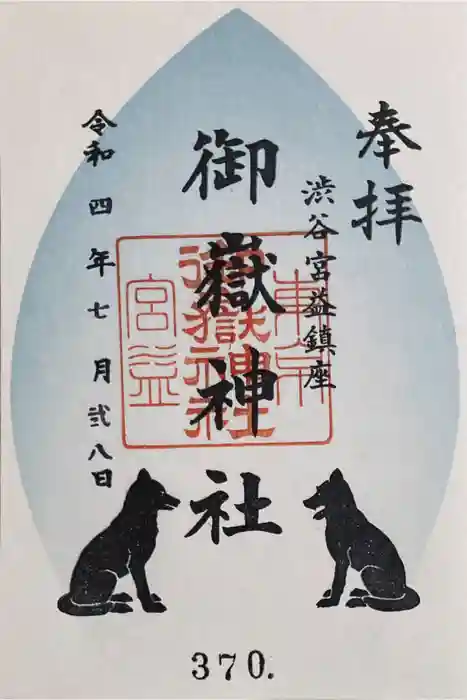 奉拝
渋谷宮益鎮座
御嶽神社
令和四年七月弐八日
東京
宮益
370.